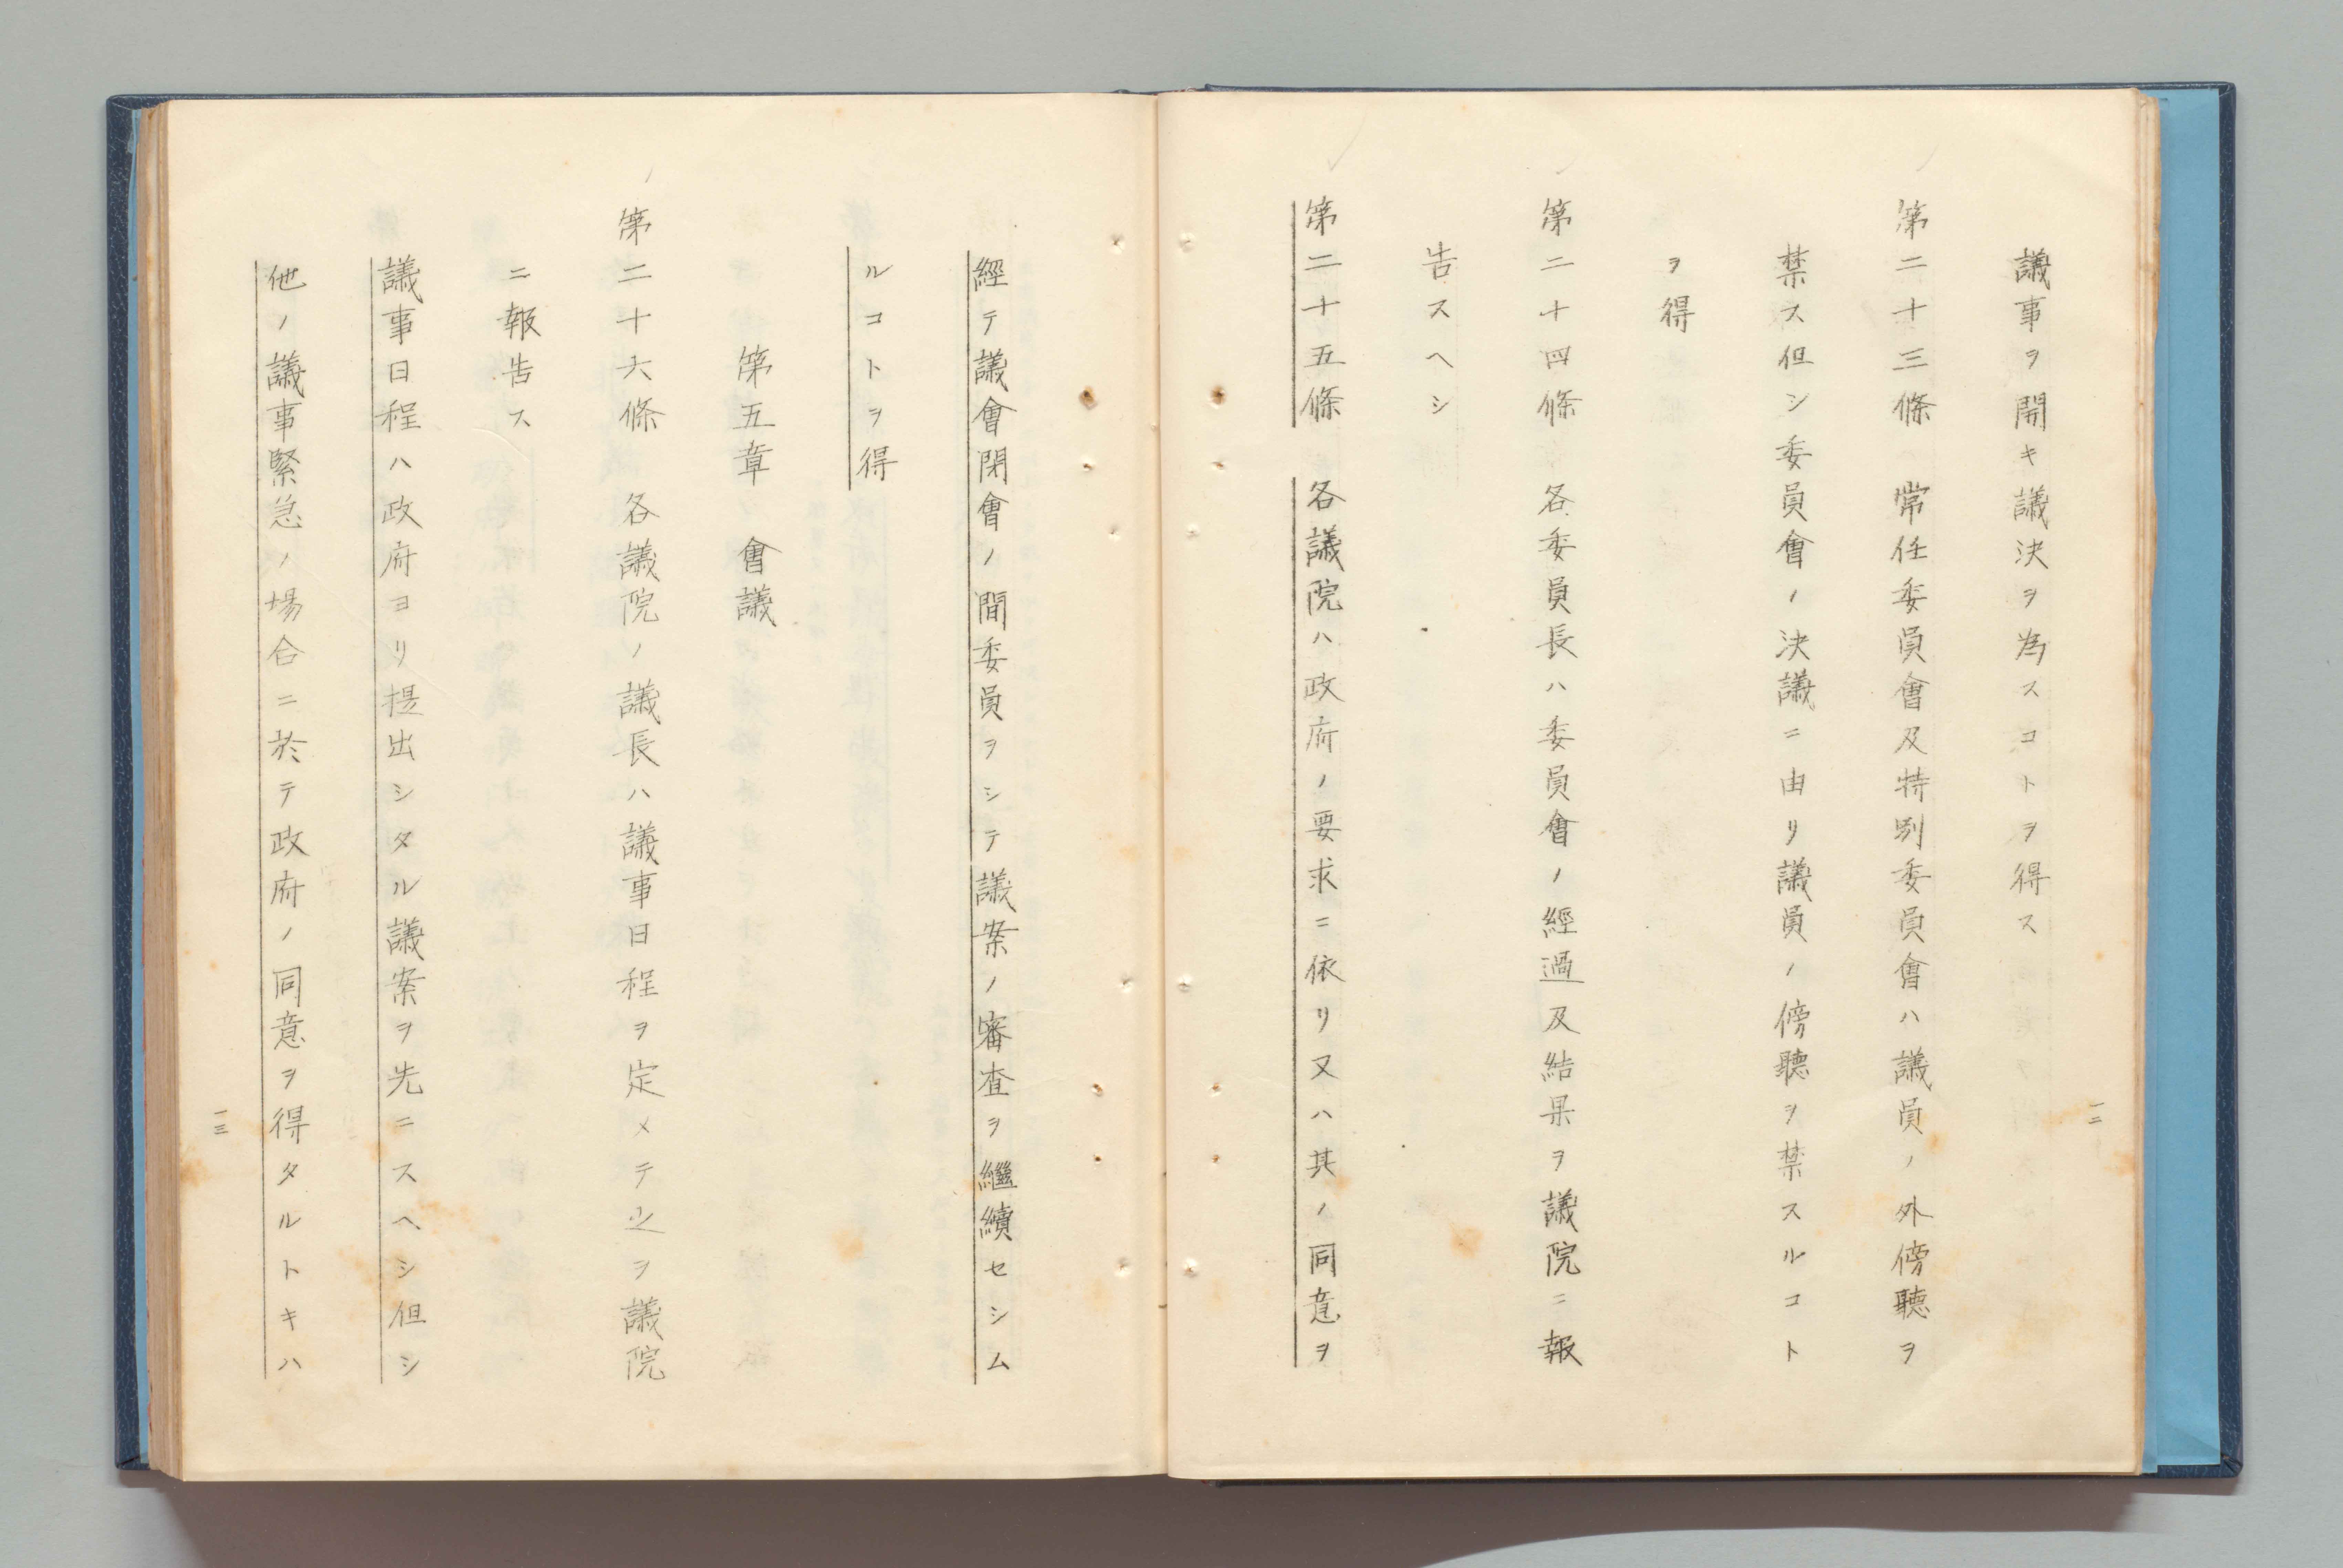 議事ヲ開キ議決ヲ為スコトヲ得ス
第二十三條 常任委員會及特別委員會ハ議員ノ外傍聽ヲ
禁ス但シ委員會ノ決議ニ由リ議員ノ傍聽ヲ禁スルコト
ヲ得
第二十四條 各委員長ハ委員會ノ經過及結果ヲ議院ニ報
告スヘシ
第二十五條 各議院ハ政府ノ要求ニ依リ又ハ其ノ同意ヲ
一二
經テ議會閉會ノ間委員ヲシテ議案ノ審査ヲ繼續セシム
ルコトヲ得
第五章 會議
第二十六條 各議院ノ議長ハ議事日程ヲ定メテ之ヲ議院
ニ報告ス
議事日程ハ政府ヨリ提出シタル議案ヲ先ニスヘシ但シ
他ノ議事緊急ノ場合ニ於テ政府ノ同意ヲ得タルトキハ
一三